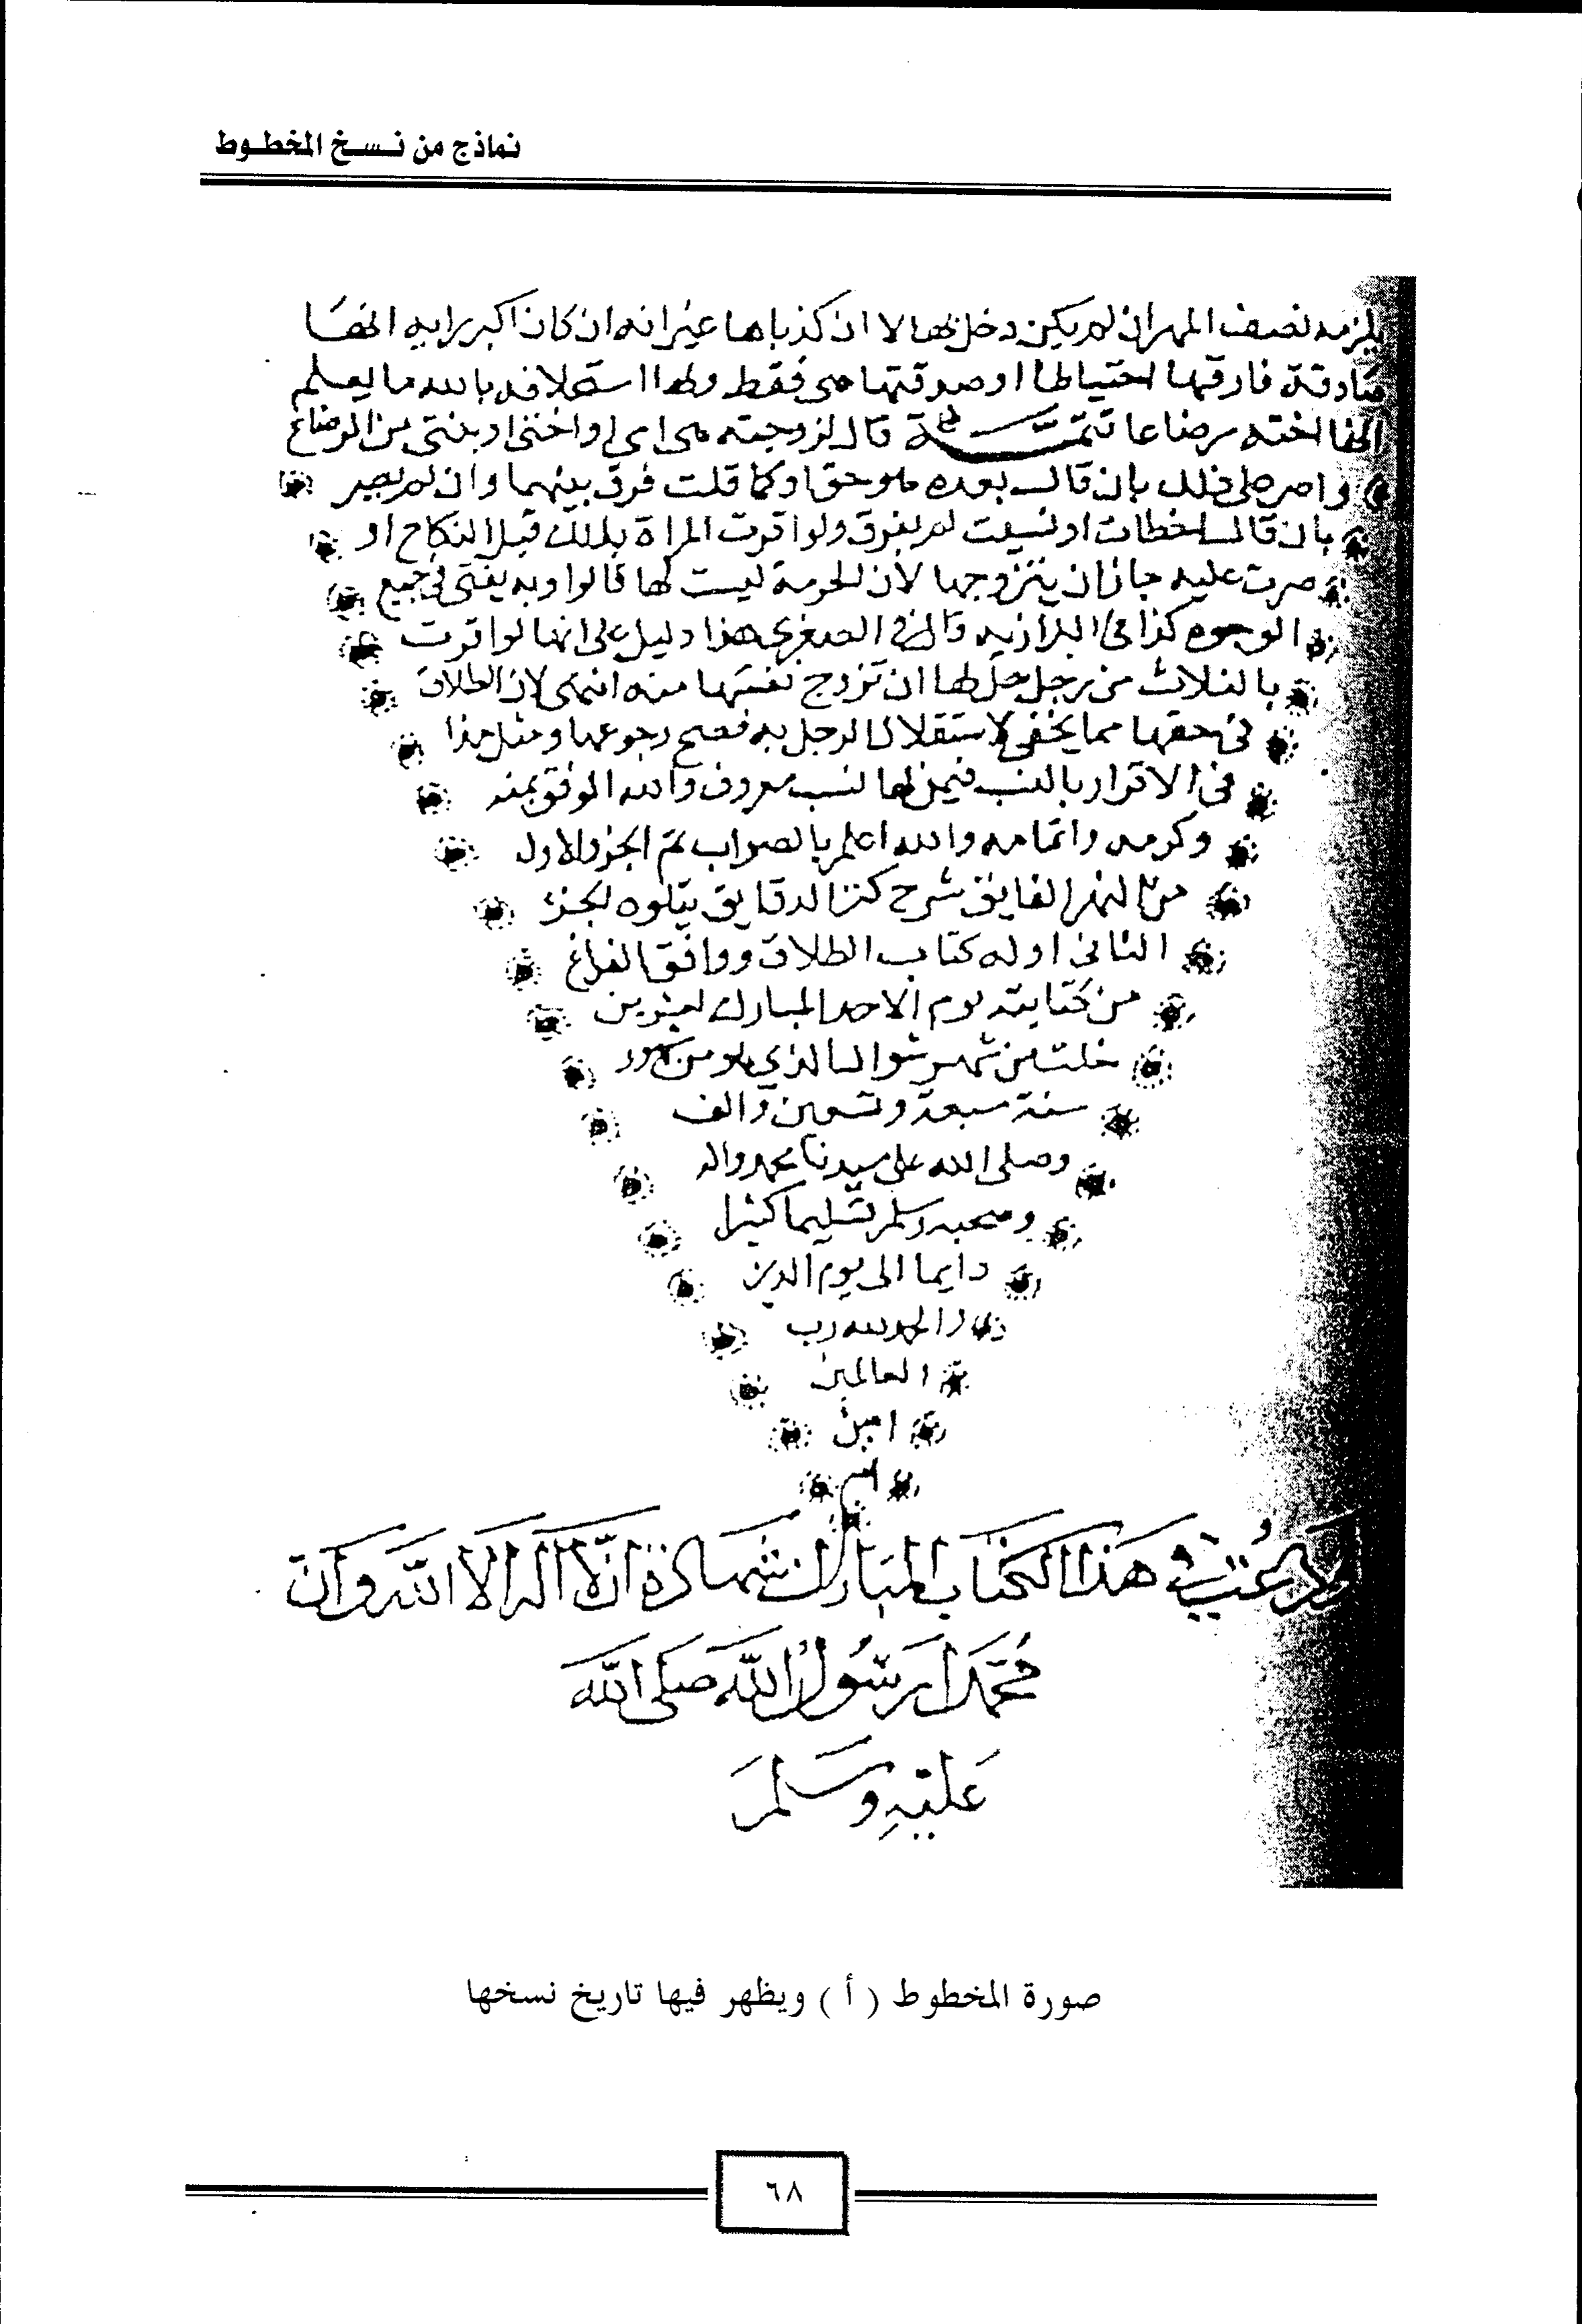 نماذج من نسخ المخطوط
يلزمه نصف المهر ان لم يكن دخل بها لا ان كذباها غير انه ان كان اكبر رايه انها
صادقة فارقها احتياطا او صدقتها هي فقط ولها استحلافه بالله ما يعلم
انها اخته رضاعا تتمة قال لزوجته هي امي او اختي او بنتي من الرضاع
واصر على ذلك بان قال بعده هو حق او كما قلت فرق بينهما وان لم يصر
بان قال اخطات او نسيت لم يفرق ولو اقرت المراة بذلك قبل النكاح او
صرت عليه جاز ان يتزوجها لان الحرمة ليست لها قالوا وبه يفتى في جميع
الوجوه كذا في البزازيه قال في الصغرى هذا دليل على انها لو اقرت
بالثلاث من رجل حل لها ان تزوج نفسها منه انتهى لان الطلاق
في حقها مما يخفى لاستقلال الرجل به فصح رجوعها ومثل هذا
في الاقرار بالنسب فيمن لها نسب معروف والله الموفق بمنه
وكرمه واتمامه والله اعلم بالصواب تم الجزو الاول
من النهر الفايق شرح كنز الدقايق يتلوه الجزء
الثاني اوله كتاب الطلاق ووافق الفراغ
من كتابته يوم الاحد المبارك لعشرين
خلت من شهر شوال الذي هو من شهور
سنة سبعة وتسعين والف
وصلى الله على سيدنا محمد واله
وصحبه وسلم تسليما كثيرا
دايما الى يوم الدين
والحمد لله رب
العالمين
امين
هذا الكتاب المبارك شهادة ان لا اله الا الله وان
محمدا رسول الله صلى الله
عليه وسلم
صورة المخطوط ( أ ) ويظهر فيها تاريخ نسخها
٦٨